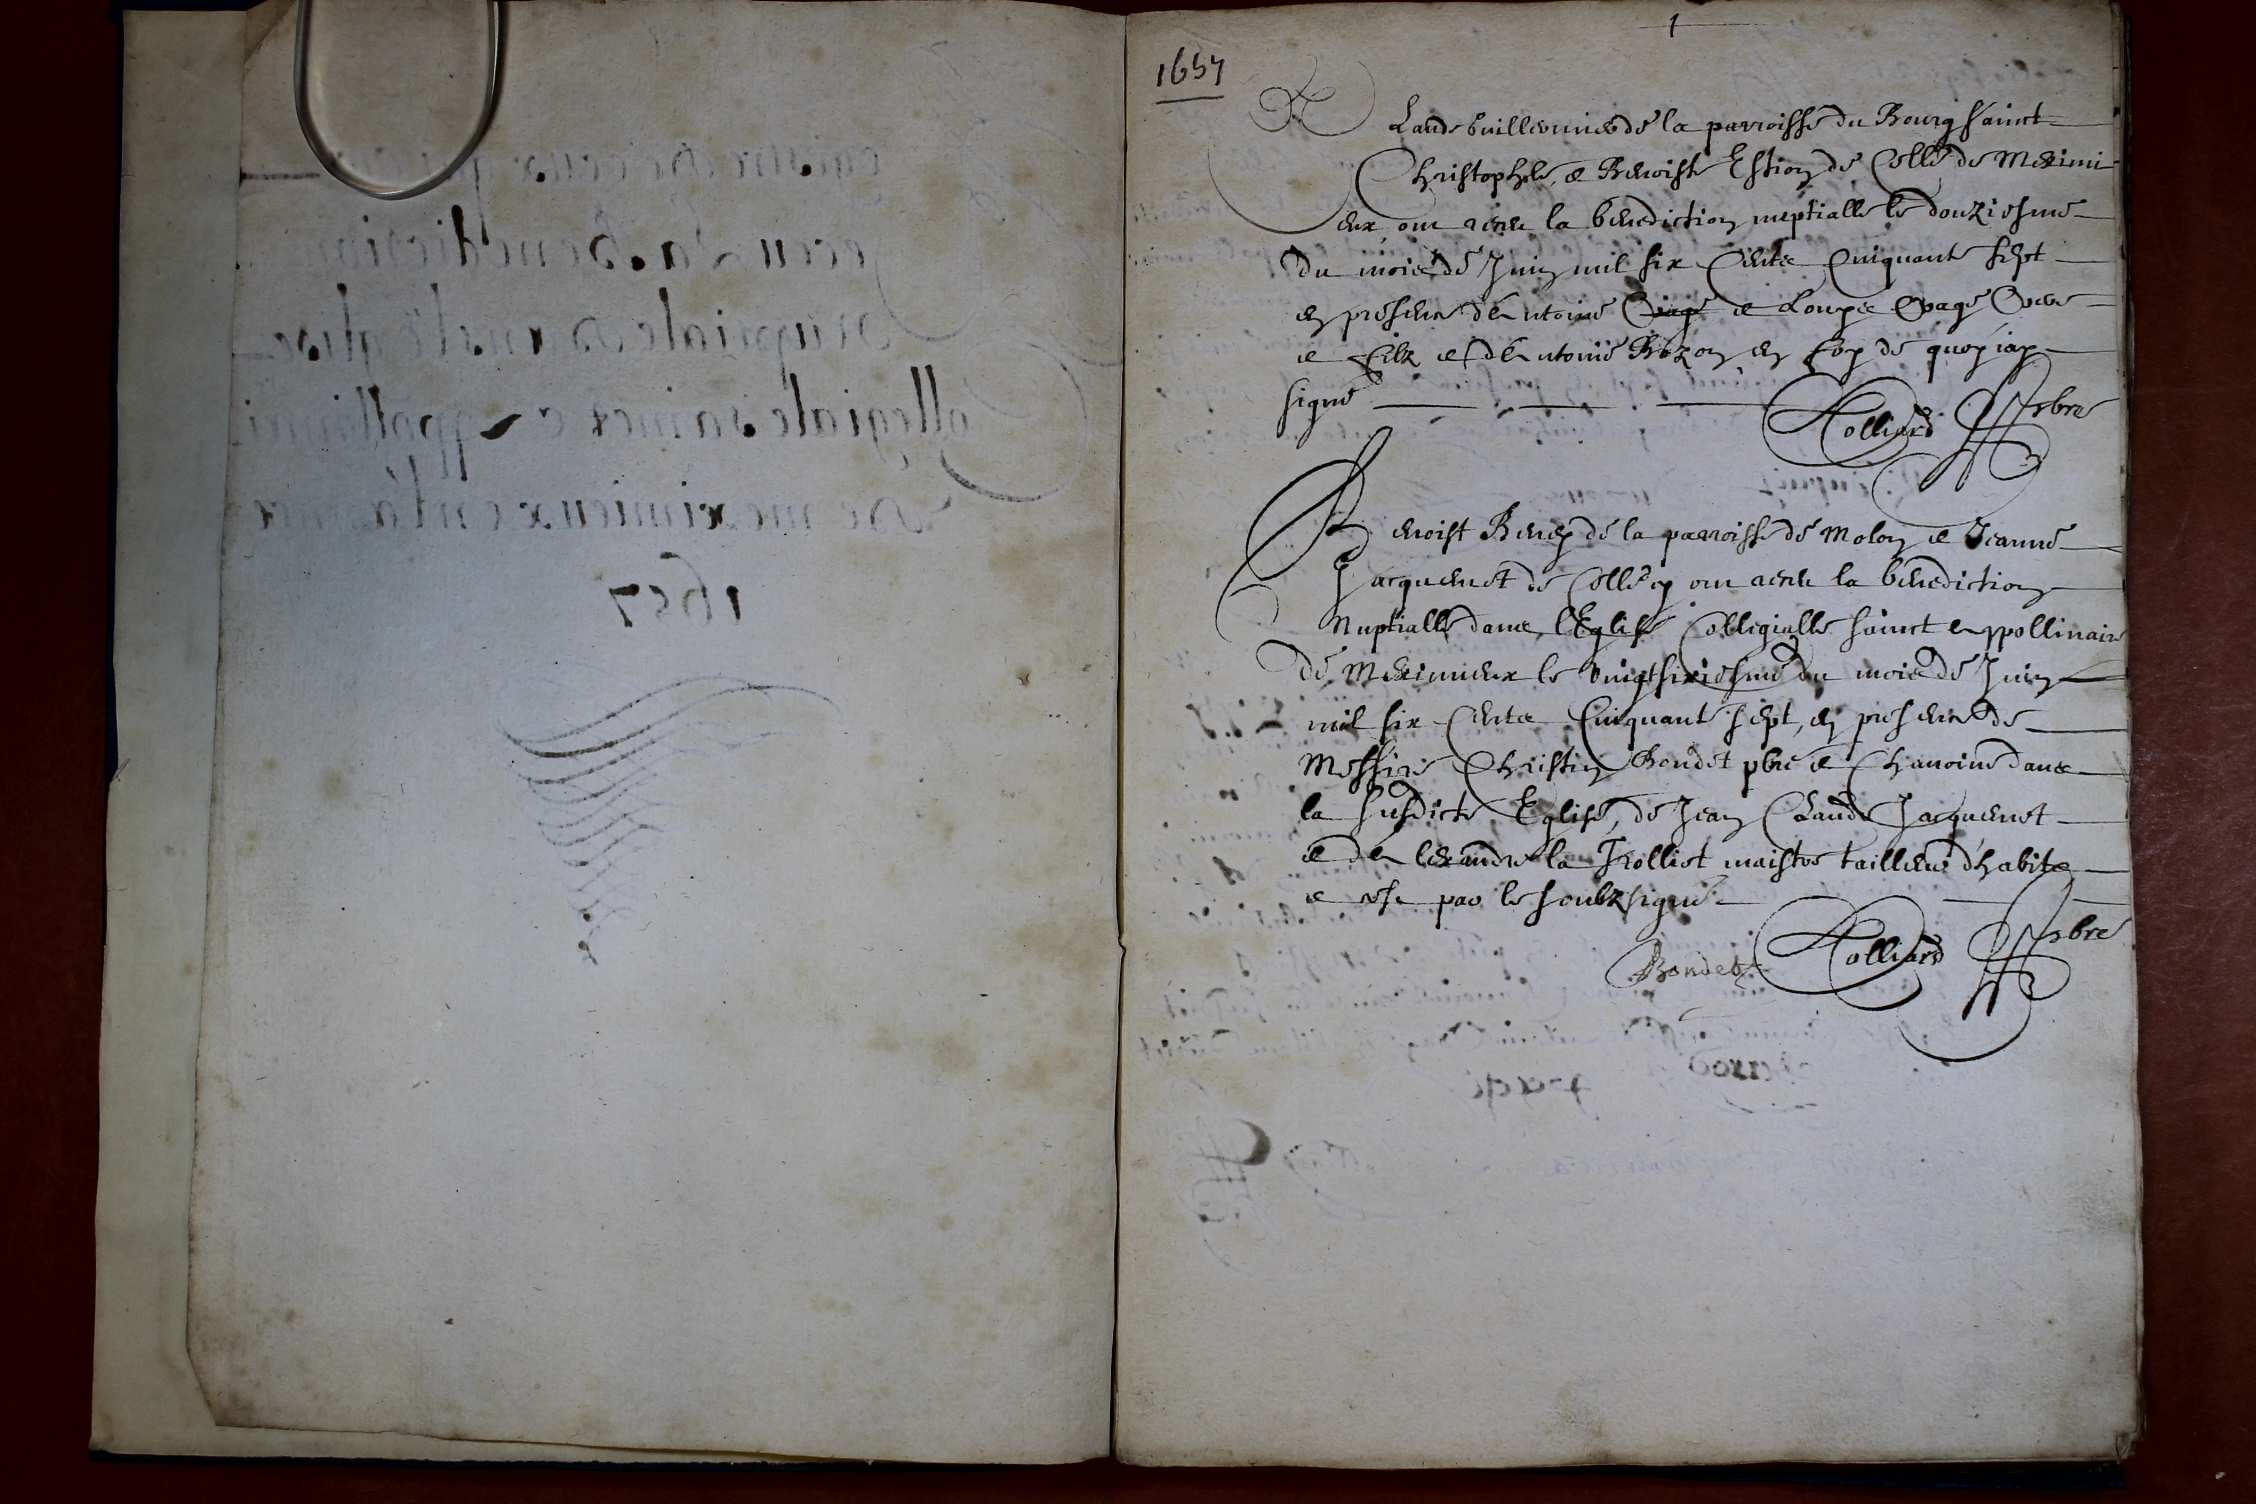 1
1657
Claude Guillermier de la parroisse du Bourg sainct
Christophle, & Benoiste Estion de Celle de Meximi
eux, ont receu la benediction nuptialle le douziesme
du mois de Juin mil six Cents Cinquante sept
en presence d'Antoine & Loupe Vage Pere
& Filz & d'Antoine Bozon en foy de quoy iay
signé Colliard Pbre
Benoist Beney de la parroisse de Molon & Jeanne
Jacquemet de Celle cy ont receu la benediction
Nuptialle dans l'Eglise Collegialle sainct Appollinaire
de Meximieux le vingtsixiesme du mois de Juin
mil six Cents Cinquante sept, en presence de
Messire Christin Bondet pbre & Chanoine dans
la susdicte Eglise, de Jean Claude Jacquemet
& d'Alexandre la Trolliet maistre tailleur d'habits
& ce par le soubzsigné
Bondet Colliard Pbre